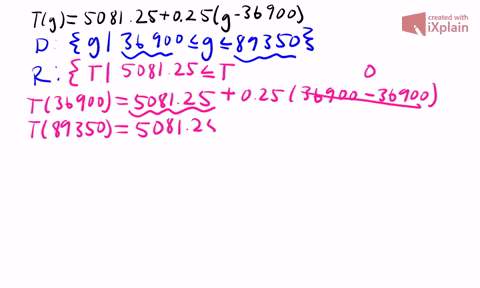 T(g)=5081.25+0.25(g-36900)
created with
iXplain
D: {g|36900≤g≤89350}
R: {T|5081.25≤T
0
T(36900)=5081.25+0.25(36900-36900)
T(89350)=5081.25